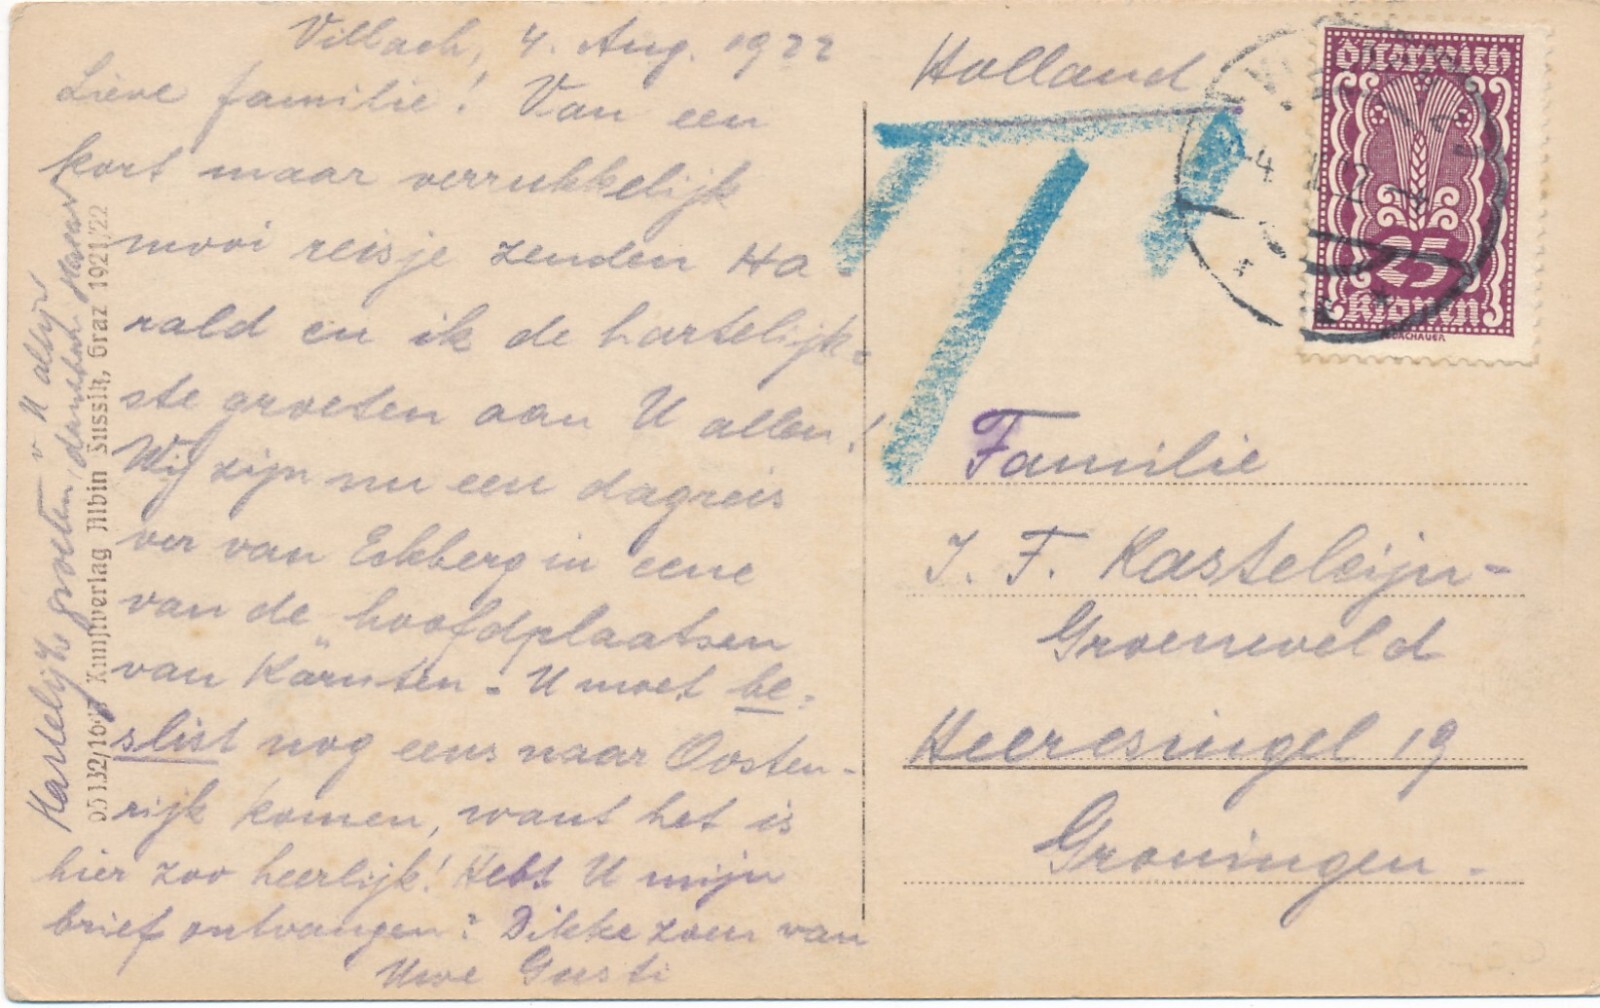 Villach, 4. Aug. 1922
Lieve familie! Van een
kort maar verrukkelijk
mooi reisje zenden Ha-
rald en ik de hartelijk-
ste groeten aan U allen!
Wij zijn nu een dagreis
ver van Eckberg in eene
van de "hoofdplaatsen
van Kärnten. U moet be-
slist nog eens naar Oosten-
rijk komen, want het is
hier zoo heerlijk! Hebt U mijn
brief ontvangen? Dikke zoen van
Uwe Gusti
Hartelijke groeten v U aller
Kunstverlag Albin Sussitz, Graz 1921/22
Holland
T
Österreich
25
Kronen
Familie
J. F. Kasteleijn-
Groeneveld
Heeresingel 19
Groningen.